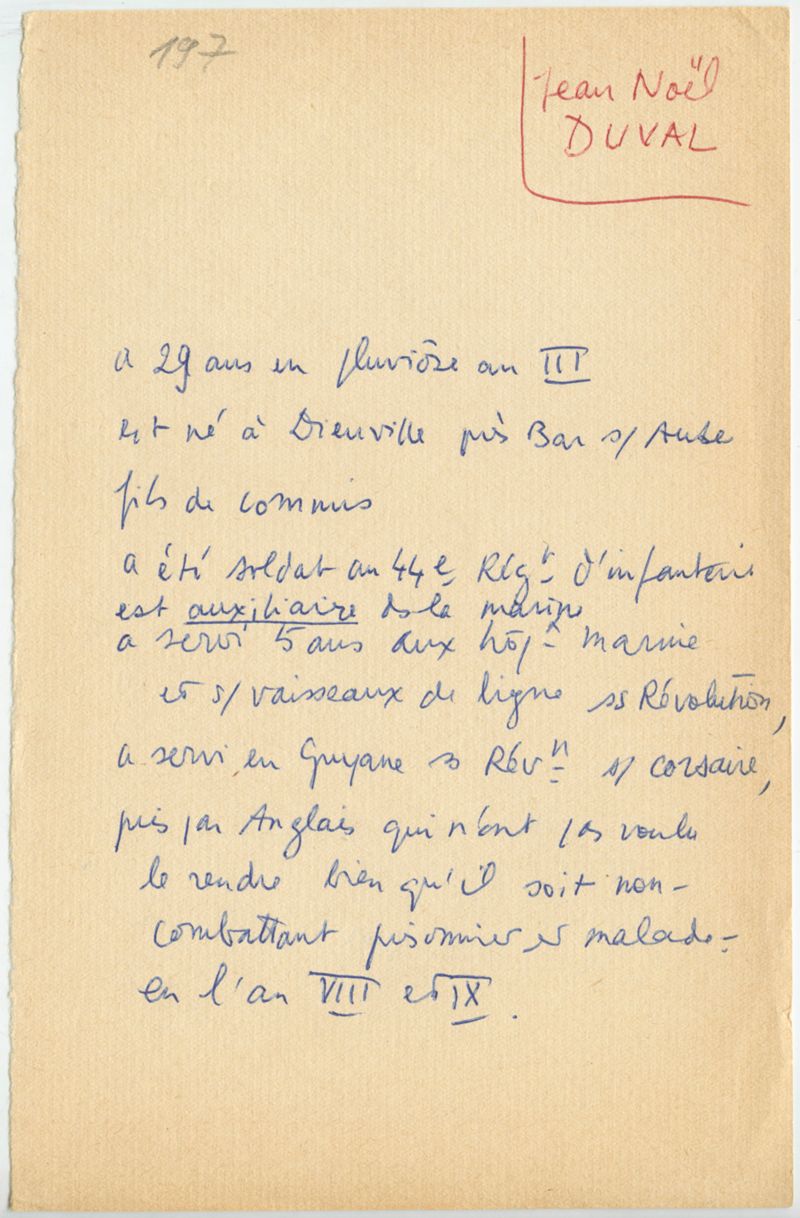 197
Jean Noël
DUVAL
a 29 ans en pluviôse an III
est né à Dienville près Bar s/ Aube
fils de commis
a été soldat au 44e Régt d'infanterie
est auxiliaire ds la marine
a servi 5 ans aux hôp. marine
et s/ vaisseaux de ligne ss Révolution,
a servi en Guyane ss Révn s/ corsaire,
pris par Anglais qui n'ont pas voulu
le rendre bien qu'il soit non-
combattant prisonnier et malade -
en l'an VIII et IX.